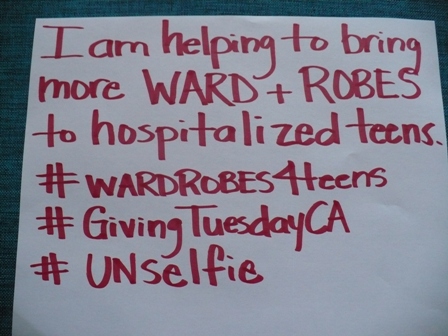 I am helping to bring
more WARD + ROBES
to hospitalized teens.
# WARDROBES4teens
# GivingTuesdayCA
# UNselfie